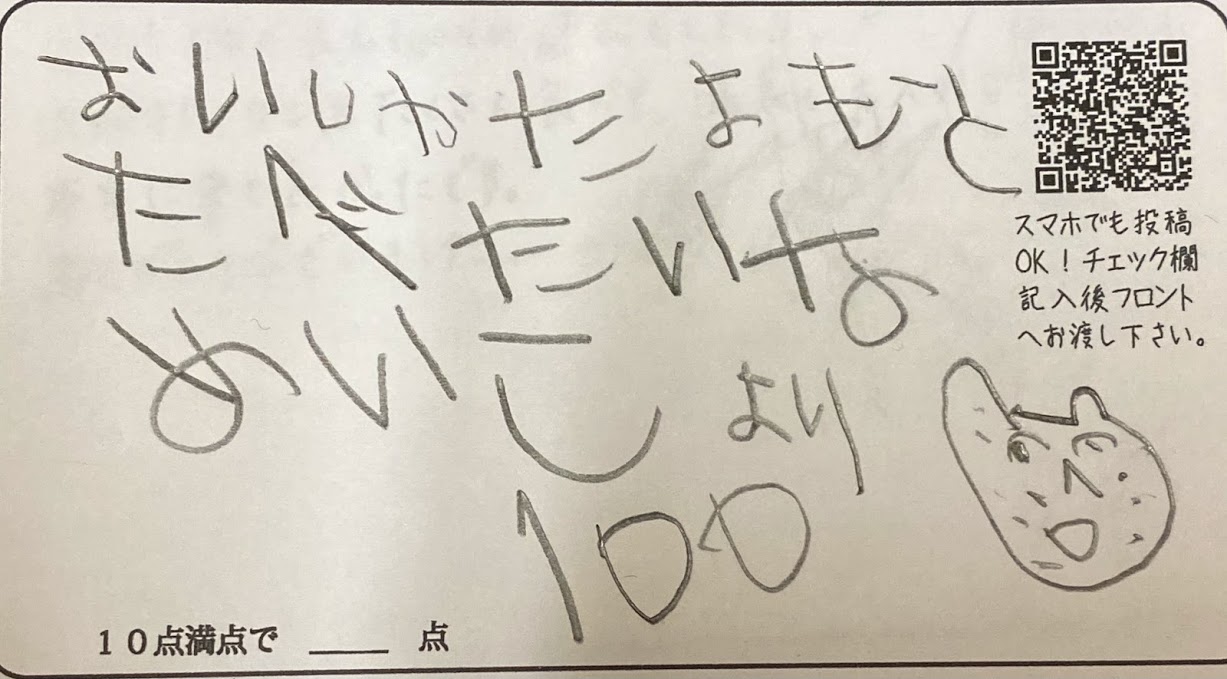 おいしかたよもと
たべたいナよ
めいこしより
100
スマホでも投稿
OK！チェック欄
記入後フロント
へお渡し下さい。
10点満点で ____ 点